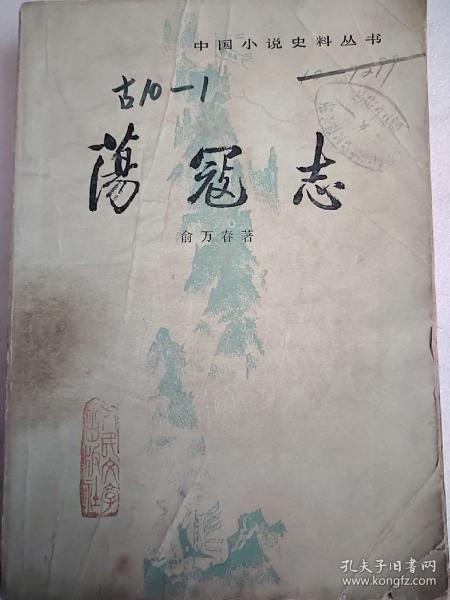 中国小说史料丛书
古10-1
蕩寇志
俞万春著
人民文学
出版社
孔夫子旧书网
www.kongfz.com